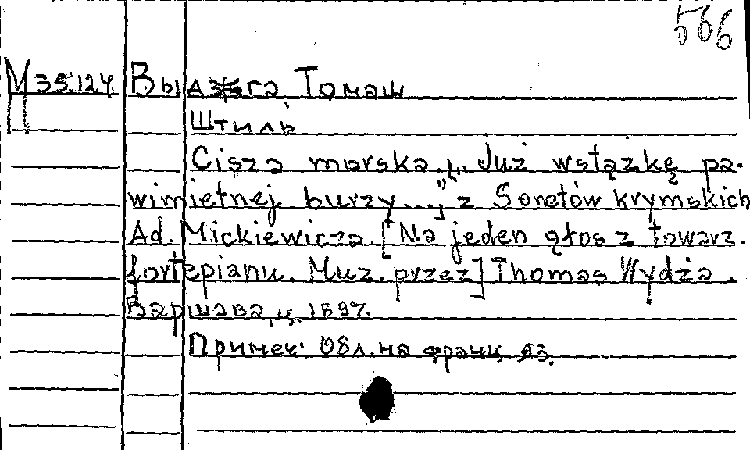 566
М 35.124 Выдзга Томаш
Штиль
Cisza morska „Już wstążkę pa-
wimiętnej burzy...", z Sonetów krymskich
Ad. Mickiewicza. [Na jeden głos z towarz.
fortepianu. Muz. przez] Thomas Wydża.
Варшава, ц. 1897.
Примеч: Обл. на франц. яз.